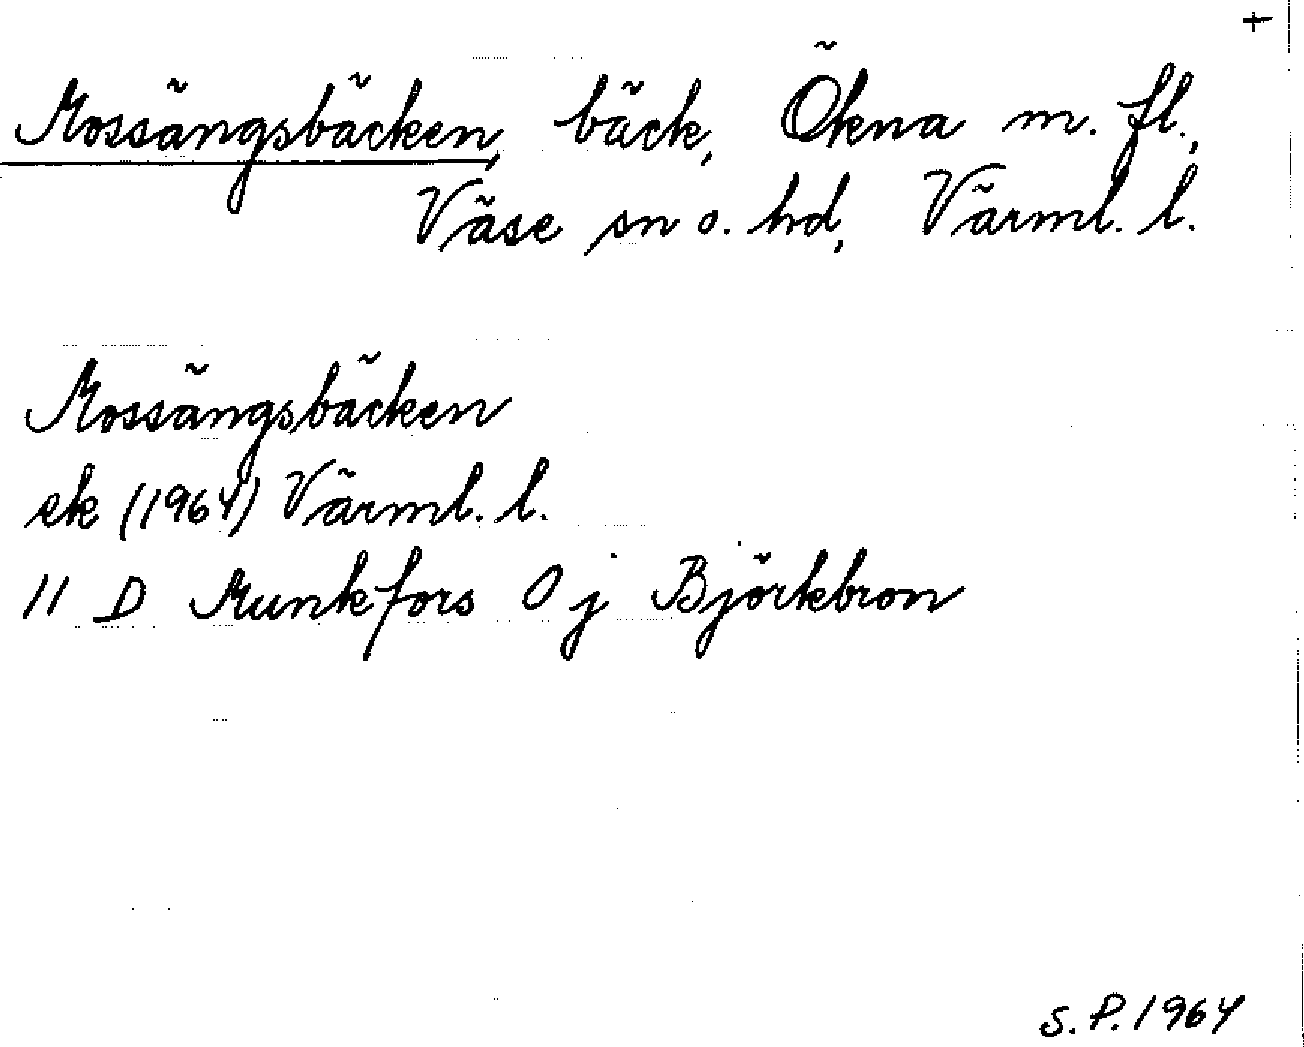 +
Mossängsbäcken, bäck, Ökna m. fl.,
Väse sn o. hd, Värml. l.
Mossängsbäcken
ek (1964) Värml. l.
11 D Munkfors 0 j Björkbron
S.P. 1964